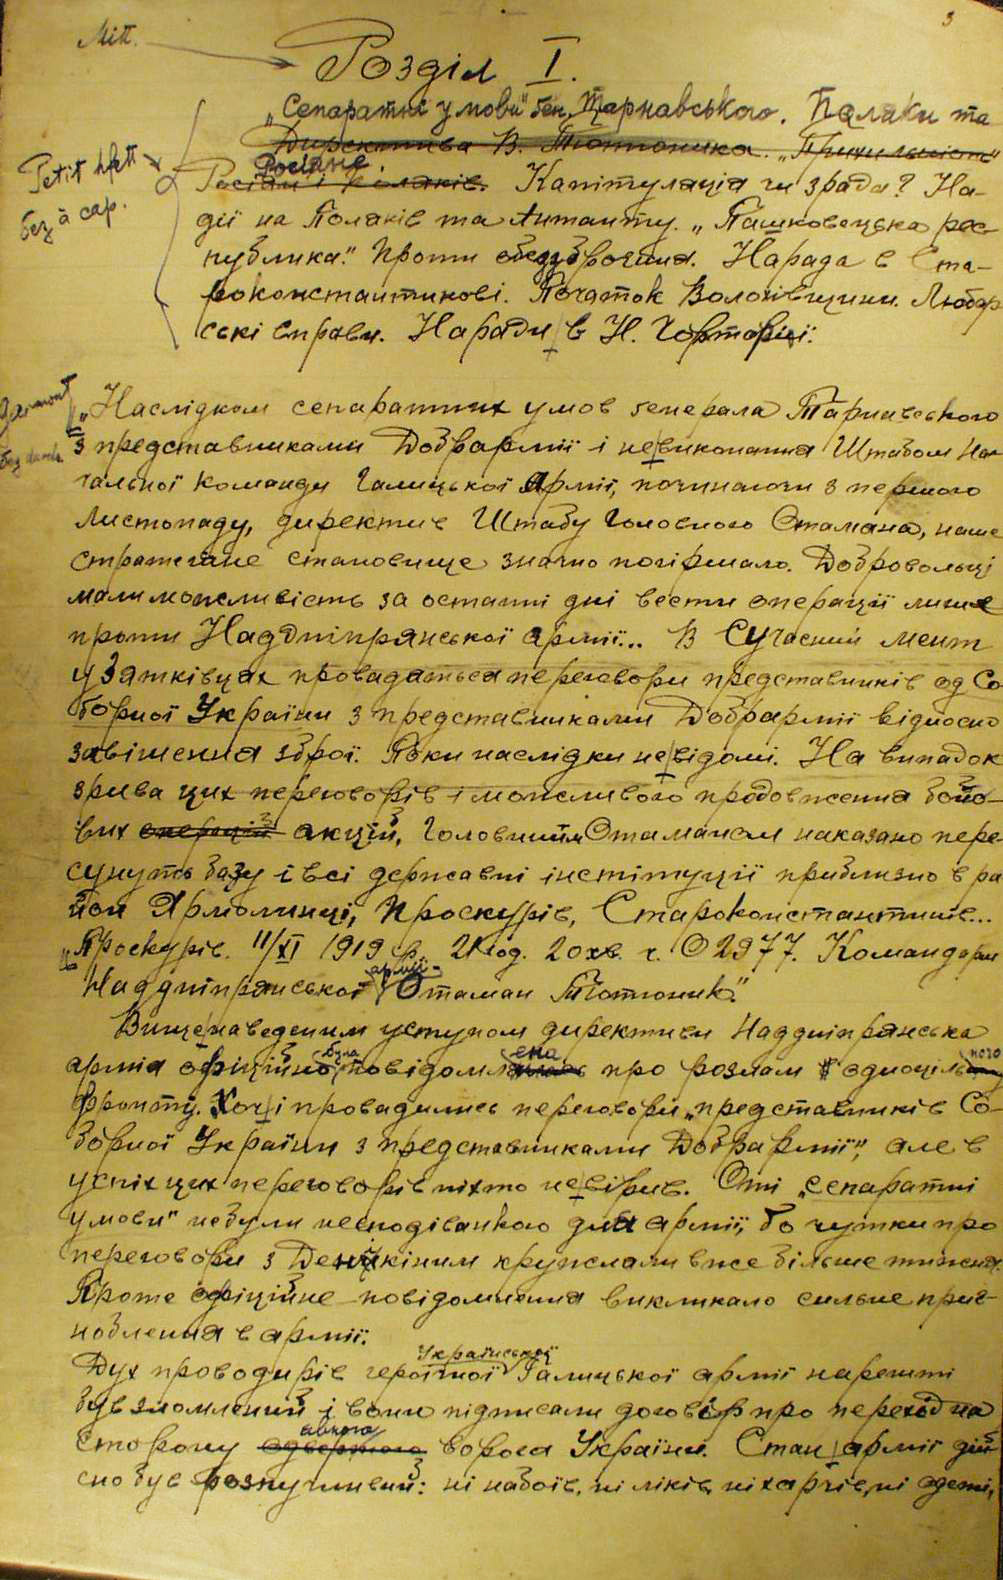 3
Mitt.
Розділ I.
„Сепаратні умови" ген. Тарнавського. Поляки та
Директива В. Тютюника. „Прихильність"
Росіяне.
Росіян і поляків. Капітуляція чи зрада? На-
дії на Поляків та Антанту. „Пашковецька рес-
публика". Проти обеззброєння. Нарада в Ста-
роконстантинові. Початок Волохівщини. Любар-
ські справи. Наради в Н. Чорториї.
Petit fett
без à cap.
„Наслідком сепаратних умов генерала Тарнавського
з представниками Добрармії і невиконання Штабом На-
чальної команди Галицької Армії, починаючи з першого
листопаду, директив Штабу Головного Отамана, наше
стратегічне становище значно погіршало. Добровольці
мали можливість за останні дні вести операції лише
проти Наддніпрянської армії... В сучасний мент
у Зятківцях провадяться переговори представників од Со-
борної України з представниками Добрармії відносно
завішення зброї. Поки наслідки невідомі. На випадок
зрива цих переговорів і можливого продовження бойо-
вих операцій акцій, Головним Отаманом наказано пере-
сунуть базу і всі державні інстітуції приблизно в ра
йон Ярмолинці, Проскурів, Староконстантинів...
Проскурів. 11/XI 1919 р. 21 год. 20 хв. ч. О 2977. Командарм
армії
Наддніпрянської Отаман Тютюник."
Вищенаведеним уступом директиви Наддніпрянська
армія офіційно була повідомлена про розлам одноціль ного
фронту. Хоч і провадились переговори „представників Со-
борної України з представниками Добрармії", але в
успіх цих переговорів ніхто не вірив. Оті „сепаратні
умови" не були несподіванкою для армії, бо чутки про
переговори з Денікіним кружляли вже більше тижня.
Проте офіційне повідомлення викликало сильне приг-
ноблення в армії.
Української
Дух проводирів героїчної Галицької армії нарешті
був зломлений і вони підписали договір про перехід на
явного
сторону одвертого ворога України. Стан армії дій
сно був розпучливий: ні набоїв, ні ліків, ні харчів, ні одежі,